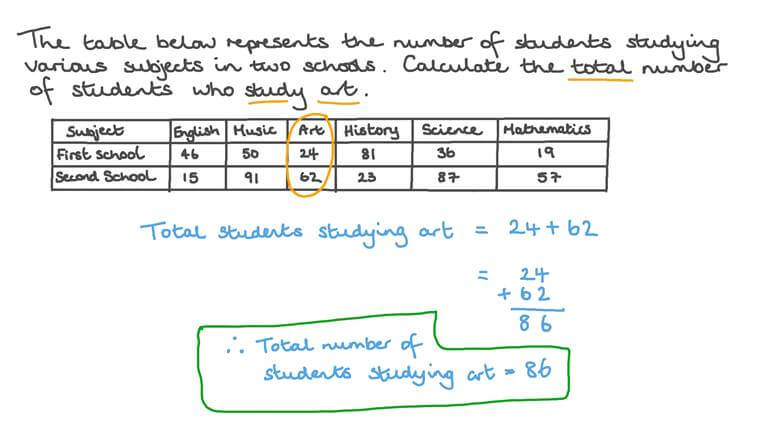 The table below represents the number of students studying
various subjects in two schools. Calculate the total number
of students who study art.
Subject English Music Art History Science Mathematics
First School 46 50 24 81 36 19
Second School 15 91 62 23 87 57
Total students studying art = 24 + 62
= 24
+ 62
86
∴ Total number of
students studying art = 86